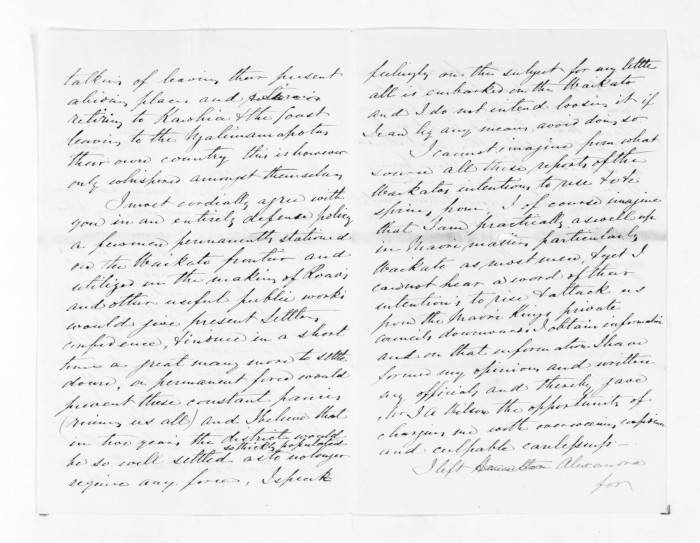 talking of leaving their present
abiding places and
retiring to Kawhia & the Coast
leaving to the Ngatimaniapotos
their own country this is however
only whispered amongst themselves
I most cordially agree with
you in an entirely defense policy
a few men permanently stationed
on the Waikato frontier and
utilized in the making of Roads
and other useful public works
would give present Settlers
confidence, & induce in a short
time a great many more to settle
down, a permanent force would
prevent these constant panics
(ruining us all) and I believe that
in two years the district would
be so well settled so thickly populated as to no longer
require any force, I speak
feelingly on the subject for my little
all is embarked in the Waikato
and I do not intend loosing it if
I can by any means avoid doing so
I cannot imagine from what
source all these reports of the
Waikatos intentions to rise &c &c
spring from, I of course imagine
that I am practically as well up
in Maori matters particularly
Waikato as most men, & yet I
cannot hear a word of their
intentions to rise & attack us
from the Maori Kings private
councils downwards. I obtain information
and on that information I have
formed my opinions and written
my officials and thereby gave
Mr J A Wilson the opportunity of
charging me with overweening confidence
and culpable carelessness —
I left Hamilton Alexandra
for